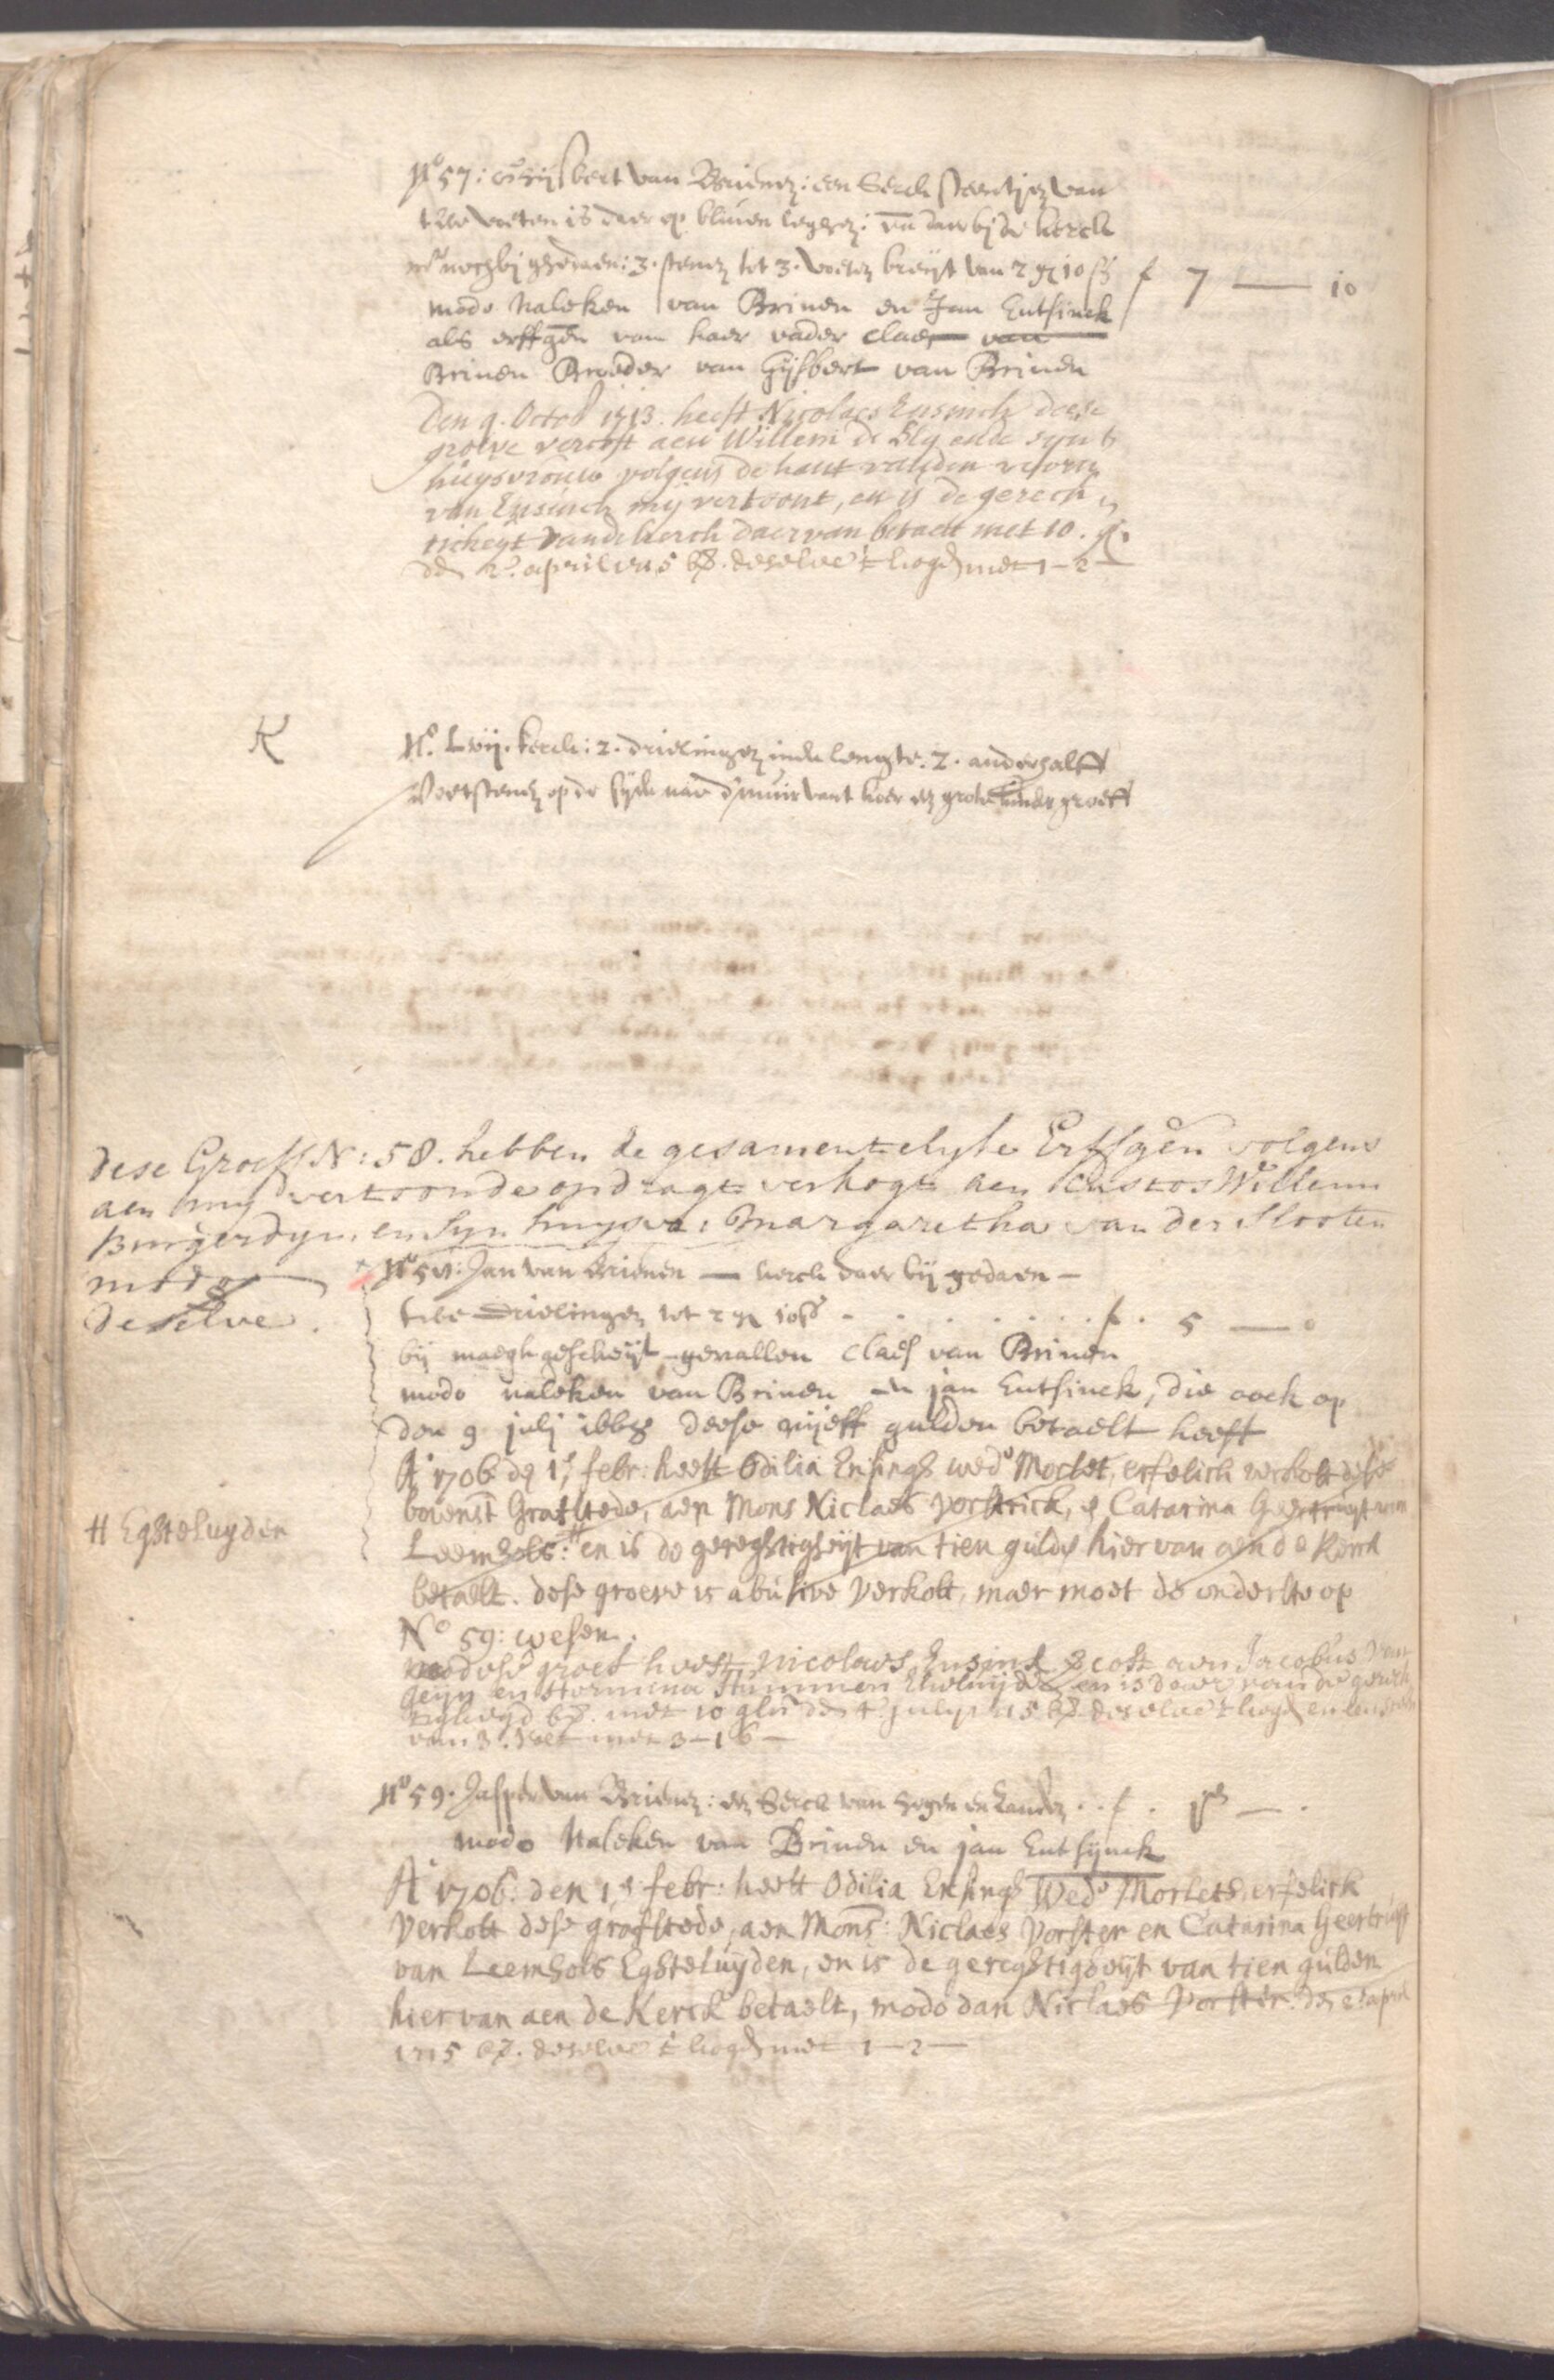 No 57: Gijsbert van Brienen: een Serck steentjen van
twe voeten is daer op bliven leggen: en daer bij de kerck
noch bij gedaen: 3. stenen tot 3. voeten breyt van 2 g 10 ß f 7 — 10
modo Naleken van Brinen en Jan Entsinck
als erffgen van haer vader claes van
Brinen Broeder van Gijsbert van Brinen
Den 9. Octob 1713. heeft Nicolaes Ensinck dese
groeve vercoft aen Willem de Bly ende syn
huysvrouw volgens de hant van den
van Ensinck my vertoont, en is de gerech
ticheyt van de kerck daer van betaelt met 10. g.
den 2. april 1715 bt. deselve t hogen met 1-2-
K
No. Lvij. kerck: 2. drielingen in de lengte. 2. anderhalff
Voetstenen op de syde nae d'muir want hier een grote kinder groeff
dese Groeff N: 58. hebben de gesamentelyke Erffgen volgens
aen my vertoonde opdragt verkogt aen Custos Willem
Burgerdyn, en Syn huysvr: Margaretha van der Slooten
modo
deselve.
No 58: Jan van Brienen — kerck daer bij gedaen -
twe drielingen tot 2 g 10 ß . . . . . f. 5 — 0
bij maeghgescheijt gevallen claes van Brinen
modo naleken van Brinen en jan Entsinck, die oock op
den 9 julj 1668 deese vijeff gulden betaelt heeft
Ao 1706 den 1 febr: heeft Odilia Ensingh wede Morlet, erfelick verkoft dese
bovenst Grafstede, aen Mons Niclaes Vorstrick, en Catarina Geertruyt van
# Egsteluyden
Leemhols: # en is de geregstigheijt van tien gulden hier van aen de Kerck
betaelt. dese groeve is abusive verkoft, maer moet de onderste op
No 59: wesen.
dese groef heeft Nicolaes Ensinck vercoft aen Jacobus van
geijn en Hermina Stummen Eheluijden en is daer van de gerech
tigheyd bt. met 10 gln den 4 july 1715 bt. deselve t hogen en
van 3. voet met 3-16-
No 59. Jasper van Brienen: een Serck van hogen en landen . . f.
modo Naleken van Brinen en jan Entsynck
Ao 1706. den 1 febr: heeft Odilia Ensingh Wede Morlets erfelick
Verkoft dese grafstede, aen Mons: Niclaes Vorster en Catarina Geertruyt
van Leemhols Egsteluijden, en is de geregstigheijt van tien gulden
hier van aen de Kerck betaelt, modo dan Niclaes Vorster. den 2 april
1715 bt. deselve t hogen met 1-2-